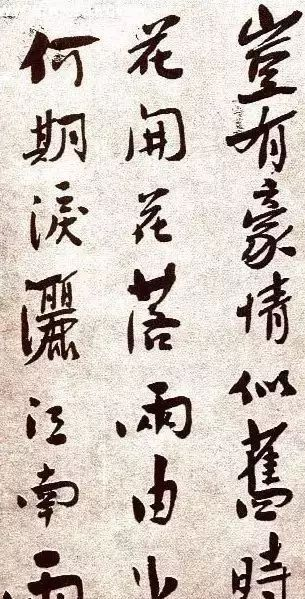 豈有豪情似舊時
花開花落兩由
何期淚灑江南雨